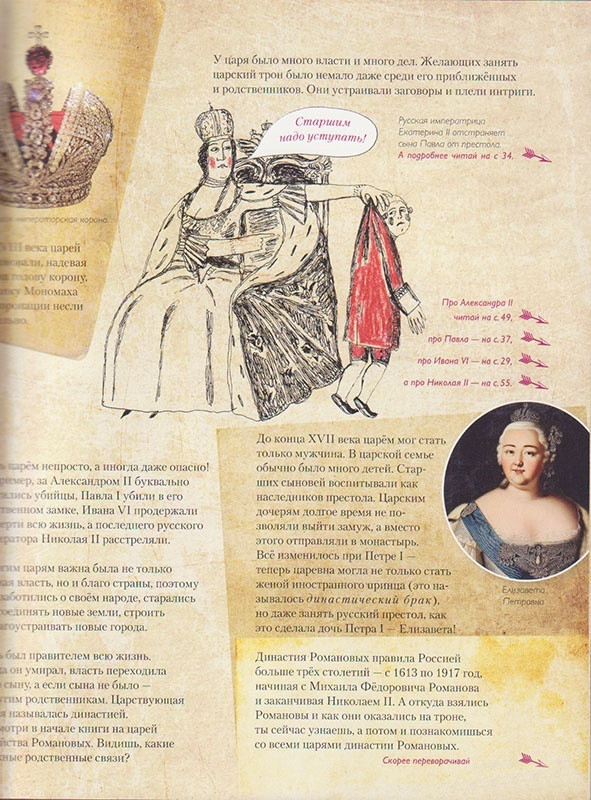 У царя было много власти и много дел. Желающих занять
царский трон было немало даже среди его приближённых
и родственников. Они устраивали заговоры и плели интриги.
Старшим
надо уступать!
Русская императрица
Екатерина II отстраняет
сына Павла от престола.
А подробнее читай на с 34.
императорская корона.
века царей
надевая
голову корону.
Мономаха
несли
Про Александра II
читай на с.49,
про Павла — на с.37,
про Ивана VI — на с.29,
а про Николая II — на с.55.
царём непросто, а иногда даже опасно!
за Александром II буквально
убийцы, Павла I убили в его
замке, Ивана VI продержали
всю жизнь, а последнего русского
Николая II расстреляли.
царям важна была не только
власть, но и благо страны, поэтому
о своём народе, старались
новые земли, строить
новые города.
был правителем всю жизнь.
он умирал, власть переходила
сыну, а если сына не было —
родственникам. Царствующая
называлась династией.
в начале книги на царей
Романовых. Видишь, какие
родственные связи?
До конца XVII века царём мог стать
только мужчина. В царской семье
обычно было много детей. Стар-
ших сыновей воспитывали как
наследников престола. Царским
дочерям долгое время не по-
зволяли выйти замуж, а вместо
этого отправляли в монастырь.
Всё изменилось при Петре I —
теперь царевна могла не только стать
женой иностранного принца (это на-
зывалось династический брак),
но даже занять русский престол, как
это сделала дочь Петра I — Елизавета!
Елизавета
Петровна
Династия Романовых правила Россией
больше трёх столетий — с 1613 по 1917 год,
начиная с Михаила Фёдоровича Романова
и заканчивая Николаем II. А откуда взялись
Романовы и как они оказались на троне,
ты сейчас узнаешь, а потом и познакомишься
со всеми царями династии Романовых.
Скорее переворачивай